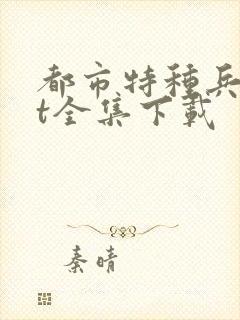 都市特種兵
t全集下載
秦晴